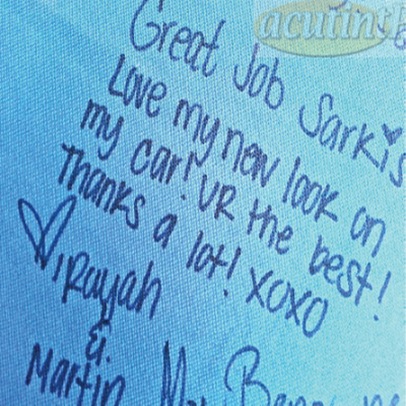 acutint
Great Job Sarkis
Love my new look on
my car! UR the best!
Thanks a lot! XOXO
Irayah
&
Martin